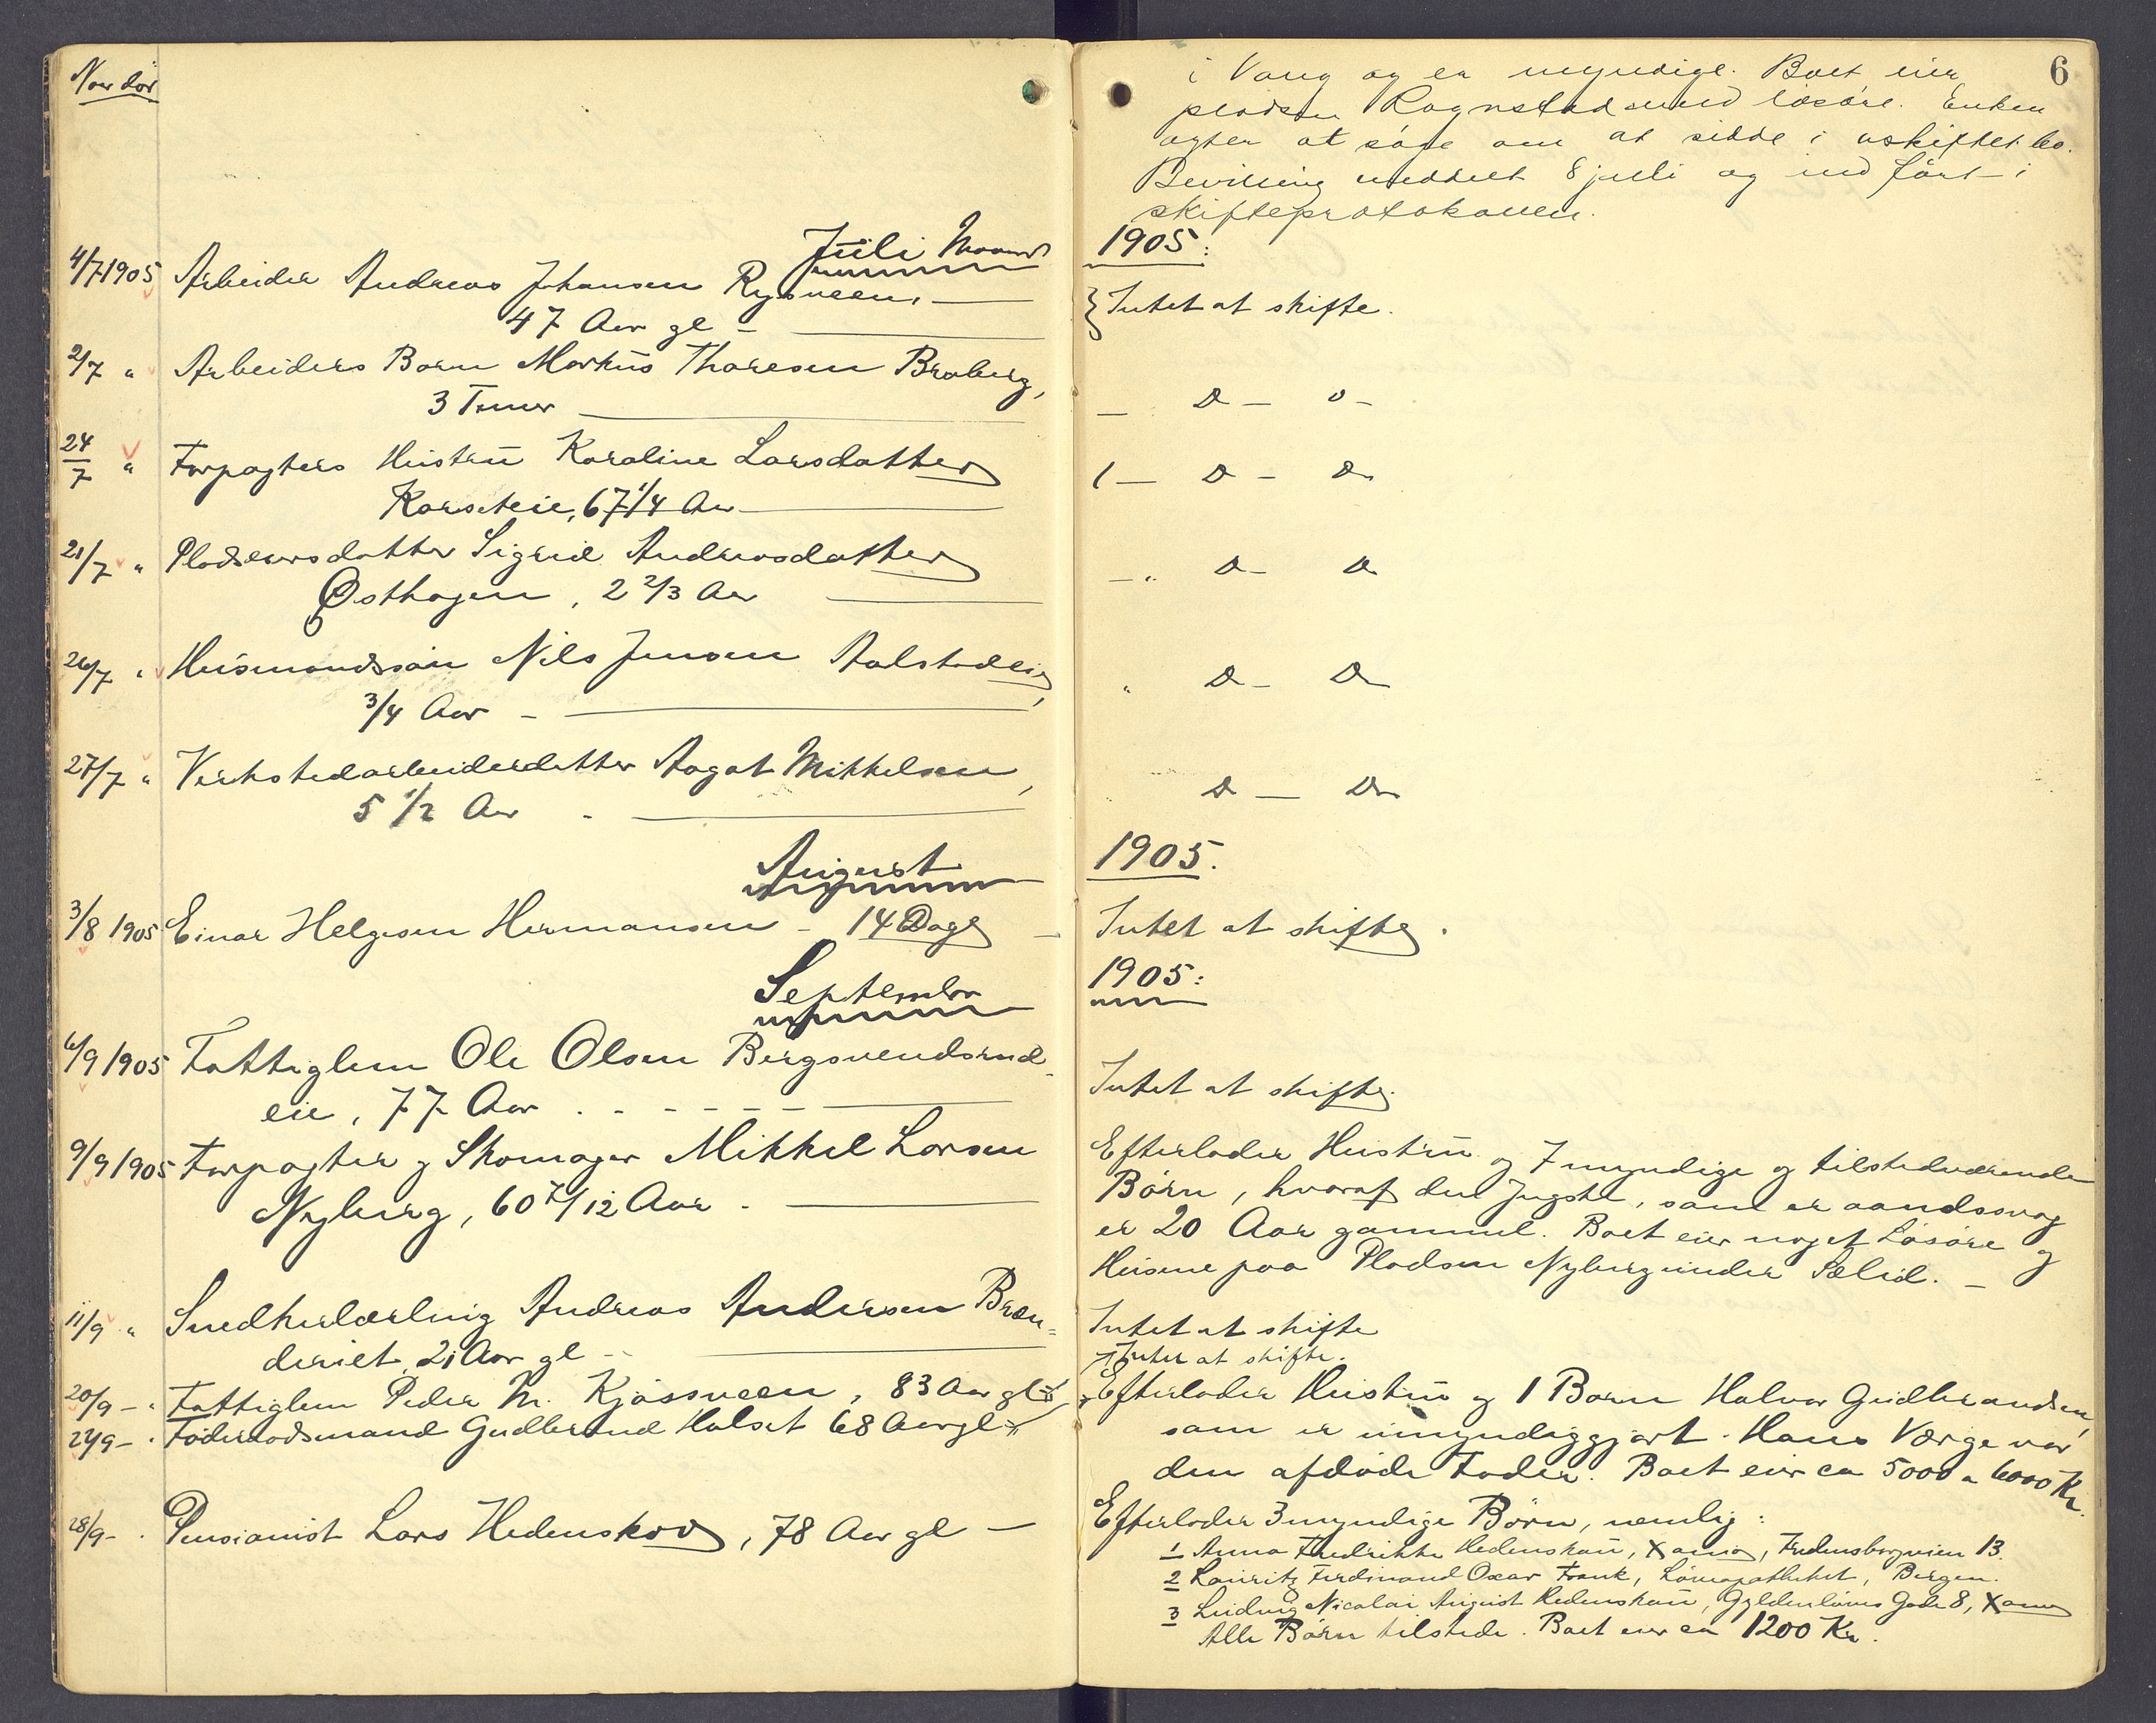 Naar død
Juli Maaned
4/7 1905 Arbeider Andreas Johansen Rysveen,
47 Aar gl
2/7 " Arbeiders Barn Markus Thoresen Braberg,
3 Timer
24/7 " Forpagters Hustru Karoline Larsdatter
Korseteie, 67 1/4 Aar
21/7 " Pladsmandsdatter Sigrid Andreasdatter
Østhagen, 2 2/3 Aar
26/7 " Husmandssøn Nils Jensen Aalstadeie,
3/4 Aar
27/7 " Verkstedarbeiderdatter Aagot Mikkelsen,
5 1/2 Aar
August
3/8 1905 Einar Helgesen Hermansen - 14 Dage
September
6/9 1905 Fattiglem Ole Olsen Bergsvendsrud-
eie, 77 Aar
9/9 1905 Forpagter og Skomager Mikkel Larsen
Nyberg, 60 7/12 Aar
11/9 " Snedkerlærling Andreas Andersen Bræn=
deriet, 21 Aar gl
20/9 - " Fattiglem Peder M. Kjøssveen, 83 Aar gl
22/9 - " Føderaadsmand Gudbrand Halset 68 Aar gl
28/9 - " Pensionist Lars Hedenskov, 78 Aar gl
6
i Vang og er myndige. Boet eier
pladsen Rognstad med løsøre. Enken
agter at søge om at sidde i uskiftet bo.
Bevilling meddelt 8 juli og indført i
skifteprotokollen.
1905:
Intet at skifte.
D - o -
D - Do
D - Do
D - Do
D - Do
1905.
Intet at skifte.
1905:
Intet at skifte.
Efterlader Hustru og 7 myndige og tilstedeværende
Børn, hvoraf den yngste, som er aandssvag
er 20 Aar gammel. Boet eier noget Løsøre og
Husene paa Pladsen Nyberg under Sælid.
Intet at skifte
Intet at skifte.
Efterlader Hustru og 1 Barn Halvor Gudbrandsen,
som er umyndiggjort. Hans Værge var
den afdøde Fader. Boet eier ca 5000 a 6000 Kr.
Efterlader 3 myndige Børn, nemlig:
1 Anna Fredrikke Hedenskou, Xania, Fredensborgveien 13.
2 Lauritz Ferdinand Oscar Frank, Løveapotheket, Bergen.
3 Ludvig Nicolai August Hedenskou, Gyldenløves Gade 8, Xania
Alle Børn tilstede. Boet eier ca 1200 Kr.